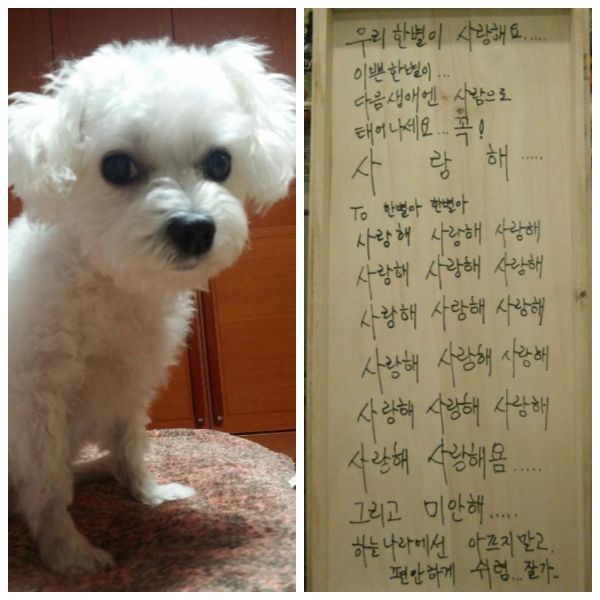 우리 한별이 사랑해요.....
이쁜한별이...
다음생애엔 사람으로
태어나세요... 꼭!
사 랑 해 .....
To 한별아 한별아
사랑해 사랑해 사랑해
사랑해 사랑해 사랑해
사랑해 사랑해 사랑해
사랑해 사랑해 사랑해
사랑해 사랑해 사랑해
사랑해 사랑해욤.....
그리고 미안해.....
하늘나라에선 아프지말고.
편안하게 쉬렴... 잘가..